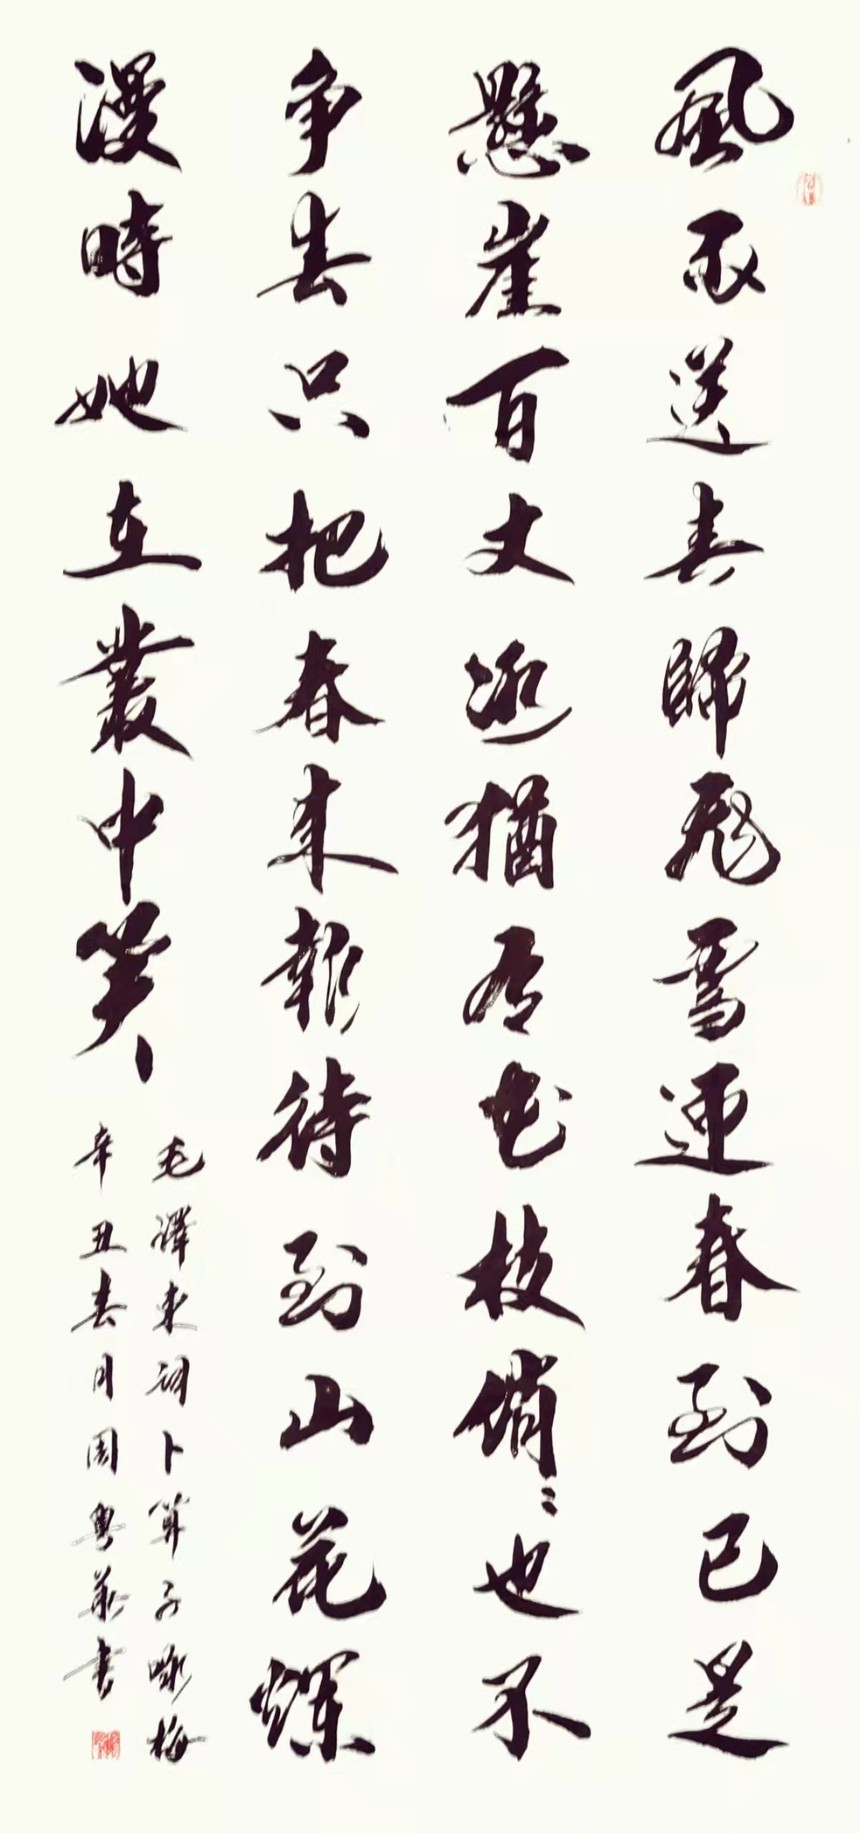 風雨送春歸飛雪迎春到已是
懸崖百丈冰猶有花枝俏〻也不
争春只把春来報待到山花爛
漫時她在叢中笑
毛澤東詞卜算子咏梅
辛丑春月周粤書